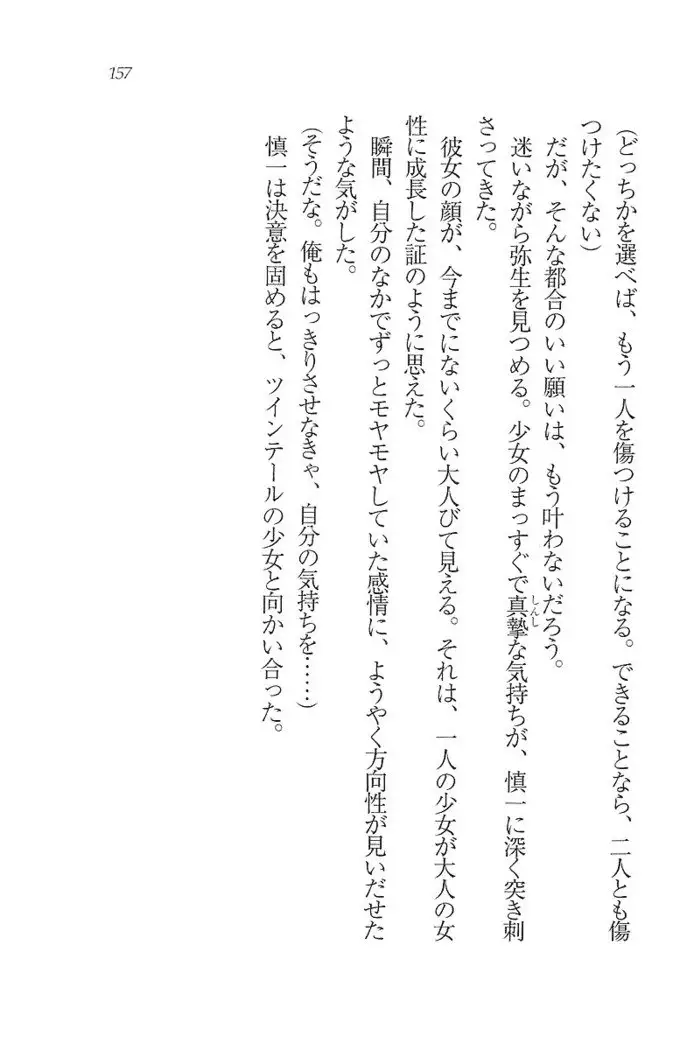 157
（どっちかを選べば、もう一人を傷つけることになる。できることなら、二人とも傷
つけたくない）
だが、そんな都合のいい願いは、もう叶わないだろう。
迷いながら弥生を見つめる。少女のまっすぐで真摯な気持ちが、慎一に深く突き刺
しんし
さってきた。
彼女の顔が、今までにないくらい大人びて見える。それは、一人の少女が大人の女
性に成長した証のように思えた。
瞬間、自分のなかでずっとモヤモヤしていた感情に、ようやく方向性が見いだせた
ような気がした。
（そうだな。俺もはっきりさせなきゃ、自分の気持ちを……）
慎一は決意を固めると、ツインテールの少女と向かい合った。